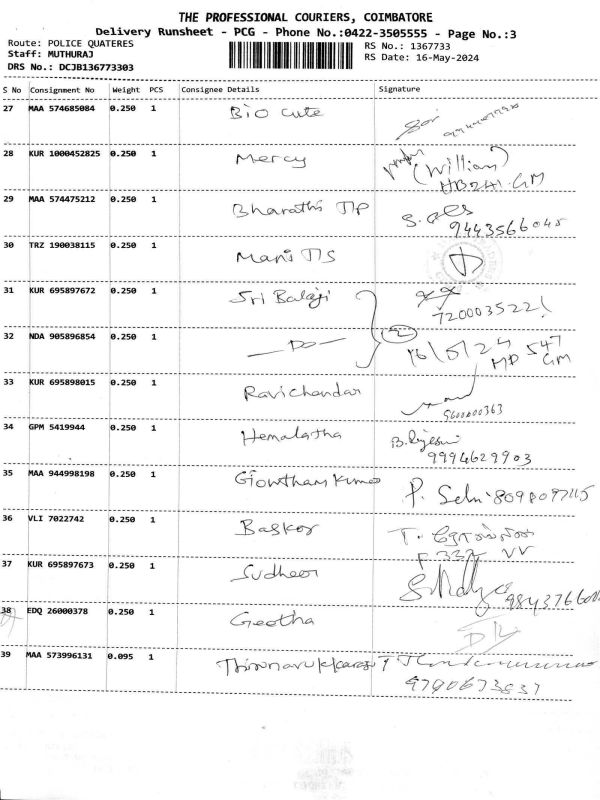 THE PROFESSIONAL COURIERS, COIMBATORE
Delivery Runsheet - PCG - Phone No.:0422-3505555 - Page No.:3
Route: POLICE QUATERES RS No.: 1367733
Staff: MUTHURAJ RS Date: 16-May-2024
DRS No.: DCJB136773303
S No Consignment No Weight PCS Consignee Details Signature
27 MAA 574685084 0.250 1 Bio Cute
28 KUR 1000452825 0.250 1 Mercy (William)
HB241.GM
29 MAA 574475212 0.250 1 Bharathi TTP
9443566045
30 TRZ 190038115 0.250 1 Mani TTS
31 KUR 695897672 0.250 1 Sri Balaji
7200035221
32 NDA 905896854 0.250 1 —Do— 2
16/5/24 MP 547
GM
33 KUR 695898015 0.250 1 Ravichandar
9600600363
34 GPM 5419944 0.250 1 Hemalatha
9994629903
35 MAA 944998198 0.250 1 Gowtham Kumar P. Selvi 8098097115
36 VLI 7022742 0.250 1 Baskar
F 332 VV
37 KUR 695897673 0.250 1 Sudheer
38 EDQ 26000378 0.250 1 Geetha
39 MAA 573996131 0.095 1 Thirunavukkarasu
9790673837